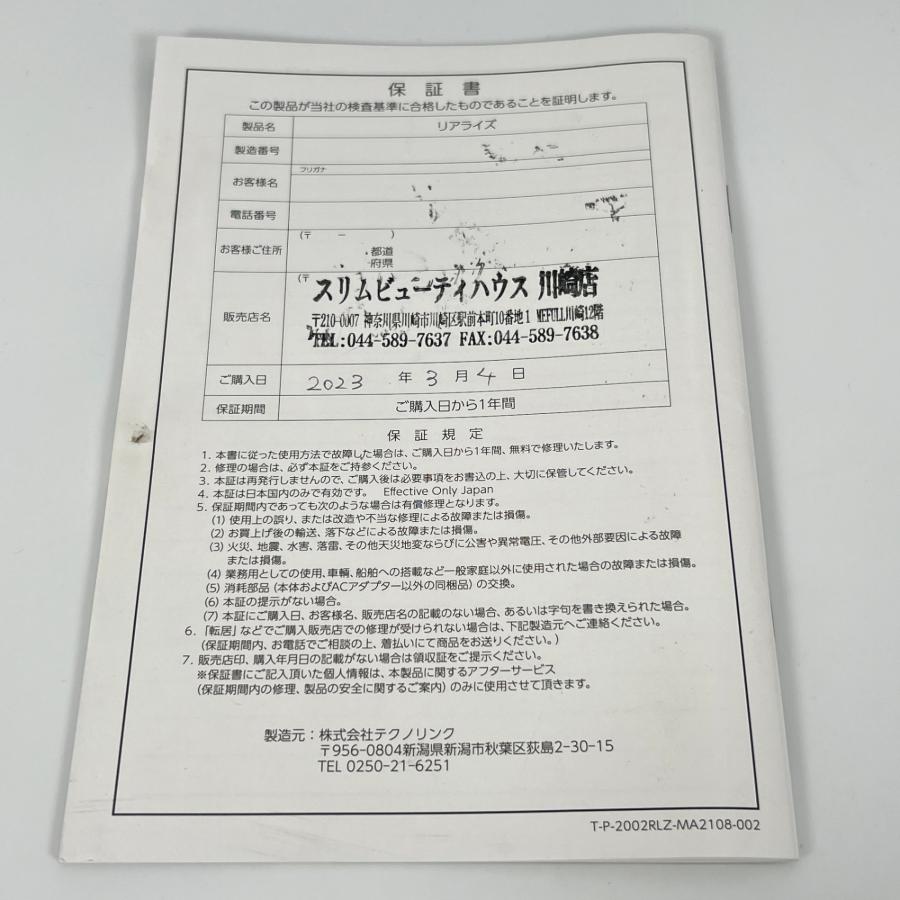 保証書
この製品が当社の検査基準に合格したものであることを証明します。
製品名 リアライズ
製造番号
お客様名 フリガナ
電話番号
お客様ご住所 (〒 － ) 都道
府県
販売店名 (〒
スリムビューティハウス 川崎店
〒210-0007 神奈川県川崎市川崎区駅前本町10番地1 MEFULL川崎12階
TEL:044-589-7637 FAX:044-589-7638
ご購入日 2023 年 3 月 4 日
保証期間 ご購入日から1年間
保証規定
1. 本書に従った使用方法で故障した場合は、ご購入日から1年間、無料で修理いたします。
2. 修理の場合は、必ず本証をご持参ください。
3. 本証は再発行しませんので、ご購入後は必要事項をお書込の上、大切に保管してください。
4. 本証は日本国内のみで有効です。 Effective Only Japan
5. 保証期間内であっても次のような場合は有償修理となります。
(1) 使用上の誤り、または改造や不当な修理による故障または損傷。
(2) お買上げ後の輸送、落下などによる故障または損傷。
(3) 火災、地震、水害、落雷、その他天災地変ならびに公害や異常電圧、その他外部要因による故障
または損傷。
(4) 業務用としての使用、車輌、船舶への搭載など一般家庭以外に使用された場合の故障または損傷。
(5) 消耗部品(本体およびACアダプター以外の同梱品)の交換。
(6) 本証の提示がない場合。
(7) 本証にご購入日、お客様名、販売店名の記載のない場合、あるいは字句を書き換えられた場合。
6. 「転居」などでご購入販売店での修理が受けられない場合は、下記製造元へご連絡ください。
(保証期間内、お電話でご相談の上、着払いにて商品をお送りください。)
7. 販売店印、購入年月日の記載がない場合は領収証をご提示ください。
※保証書にご記入頂いた個人情報は、本製品に関するアフターサービス
(保証期間内の修理、製品の安全に関するご案内)のみに使用させて頂きます。
製造元：株式会社テクノリンク
〒956-0804新潟県新潟市秋葉区荻島2-30-15
TEL 0250-21-6251
T-P-2002RLZ-MA2108-002